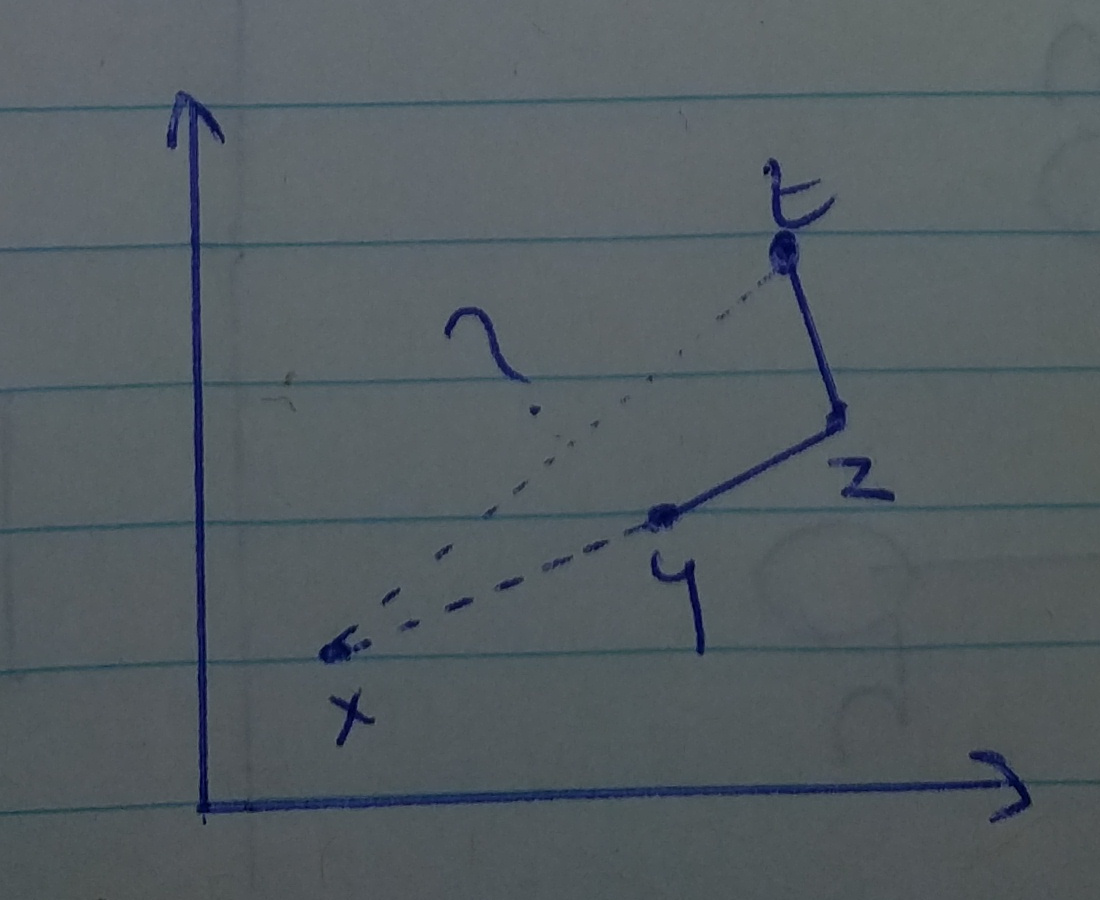 t
?
z
y
x